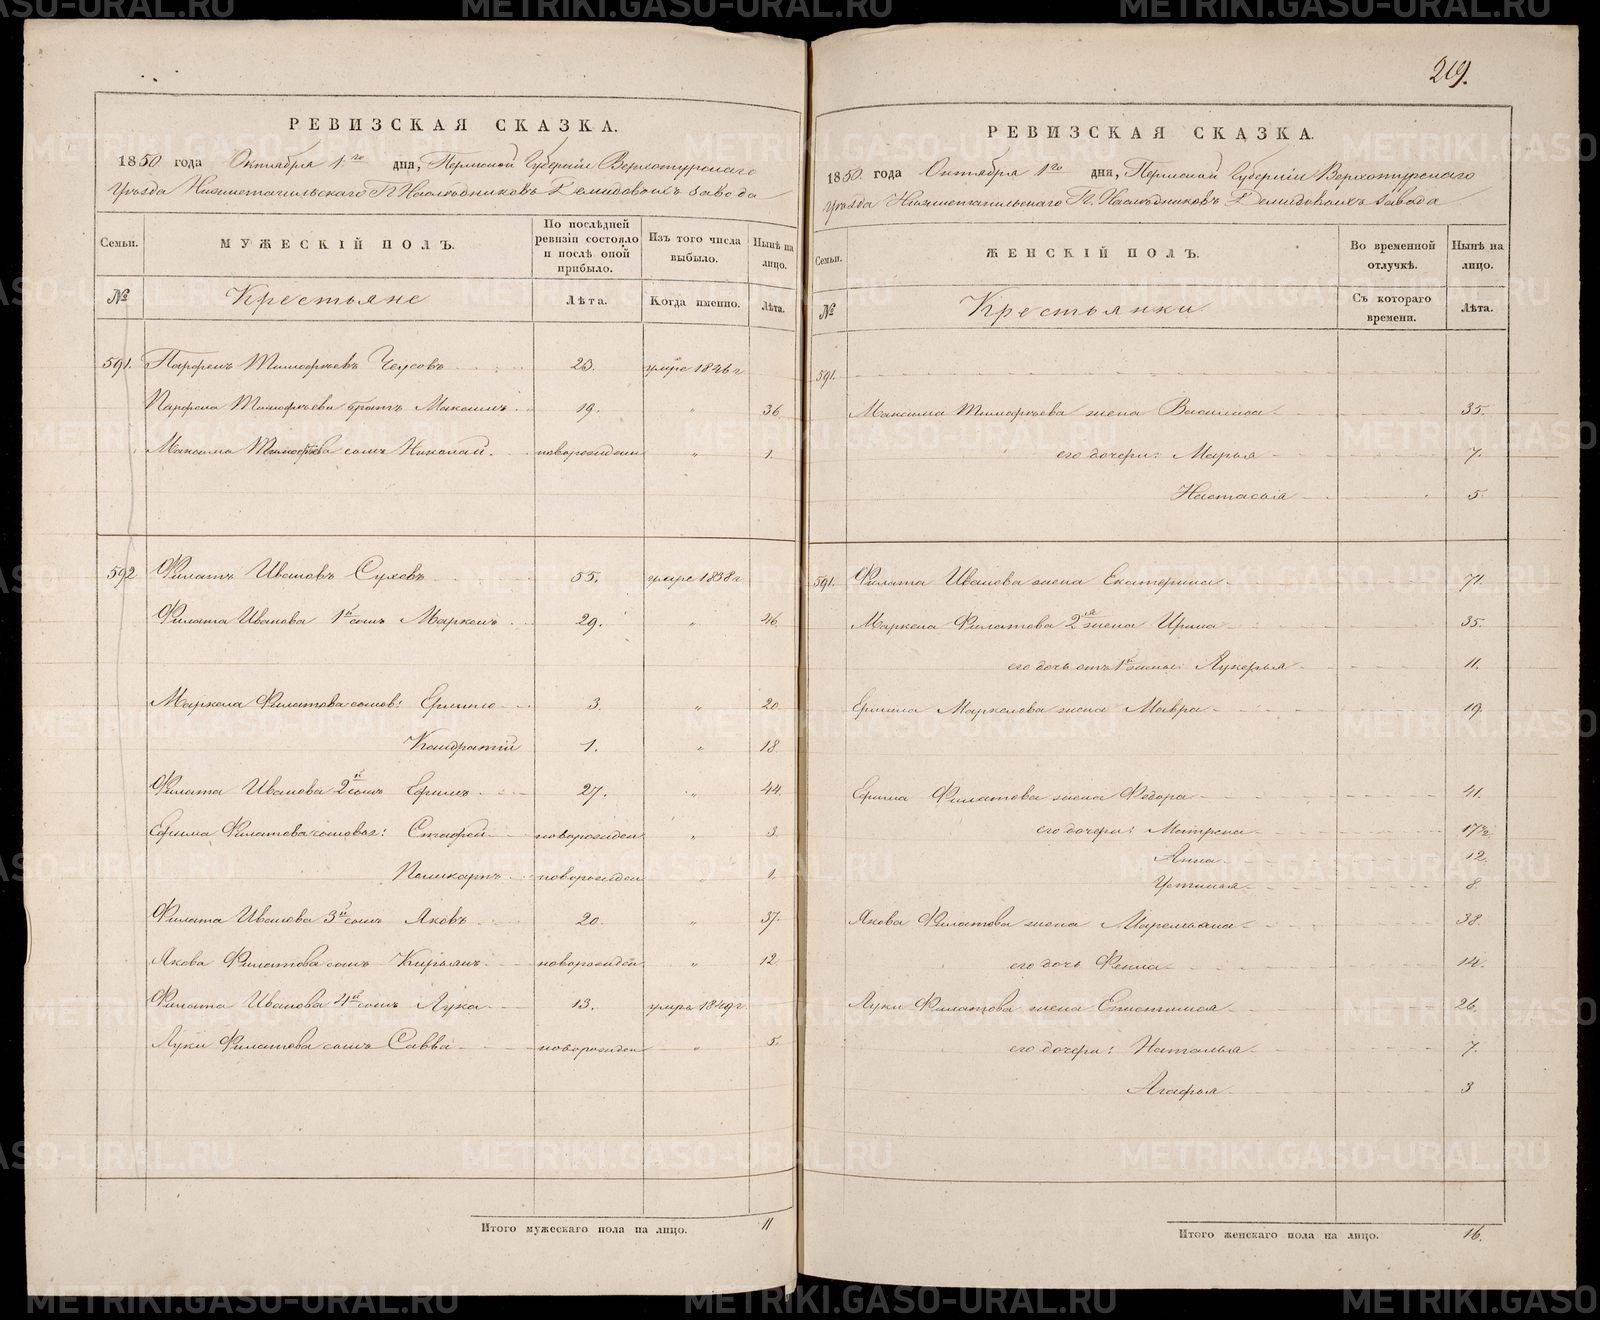 219.
РЕВИЗСКАЯ СКАЗКА.
1850 года Октября 1го дня, Пермской Губернии Верхотурскаго
Уѣзда Нижнетагильскаго Г. Наслѣдниковъ Демидовыхъ завода
Семьи.
МУЖЕСКІЙ ПОЛЪ.
По послѣдней ревизіи состояло и послѣ оной прибыло.
Изъ того числа выбыло.
Нынѣ на лицо.
№
Крестьяне
Лѣта.
Когда именно.
Лѣта.
591. Парфенъ Тимофѣевъ Чеусовъ 23. умре 1846 г
Парфена Тимофѣева братъ Максимъ 19. " 36
Максима Тимофѣева сынъ Николай. новорожден " 1.
592 Филатъ Ивановъ Суховъ 55. умре 1838 г
Филата Иванова 1й сынъ Маркелъ 29. " 46
Маркела Филатова сыновъ: Ермилъ 3. " 20
Кондратій 1. " 18
Филата Иванова 2й сынъ Ефимъ 27. " 44
Ефима Филатова сыновья: Стафей новорожден " 3.
Поликарпъ новорожден " 1.
Филата Иванова 3й сынъ Яковъ 20. " 37.
Якова Филатова сынъ Кирьянъ новорожден " 12
Филата Иванова 4й сынъ Лука 13. умре 1849 г.
Луки Филатова сынъ Савва новорожден " 5.
Итого мужескаго пола на лицо. 11
РЕВИЗСКАЯ СКАЗКА.
1850 года Октября 1го дня, Пермской Губерніи Верхотурскаго
Уѣзда Нижнетагильскаго Г. Наслѣдниковъ Демидовыхъ завода
Семьи.
ЖЕНСКІЙ ПОЛЪ.
Во временной отлучкѣ.
Нынѣ на лицо.
№
Крестьянки
Съ котораго времени.
Лѣта.
591.
Максима Тимофѣева жена Василиса 35.
его дочери: Марья 7.
Настасія 5.
591. Филата Иванова жена Екатерина 71.
Маркела Филатова 2я жена Ирина 35.
его дочь отъ 1й жены: Лукерья 11.
Ермила Маркелова жена Мавра 19.
Ефима Филатова жена Федора 41.
его дочери: Матрена 17½
Анна 12.
Устинья 8.
Якова Филатова жена Маремьяна 38.
его дочь Фекла 14.
Луки Филатова жена Епистимія 26.
его дочери: Наталья 7.
Агафья 3
Итого женскаго пола на лицо. 16.
METRIKI.GASO-URAL.RU